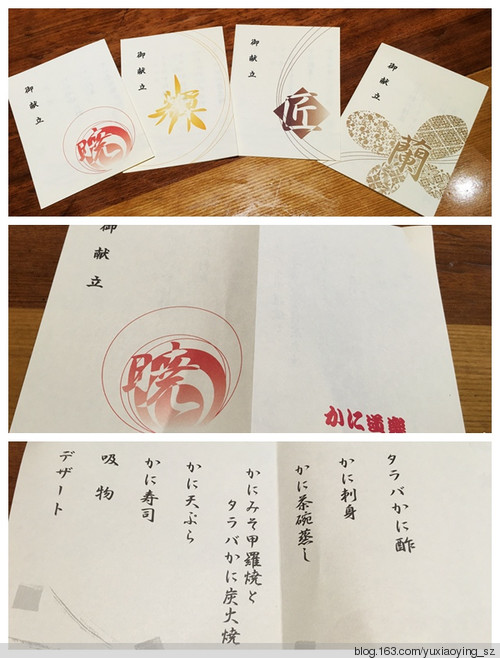 御献立
暁
御献立
御献立
匠
御献立
蘭
御献立
暁
かに道楽
タラバかに酢
かに刺身
かに茶碗蒸し
かにみそ甲羅焼と
タラバかに炭火焼
かに天ぷら
かに寿司
吸物
デザート
blog.163.com/yuxiaoying_sz